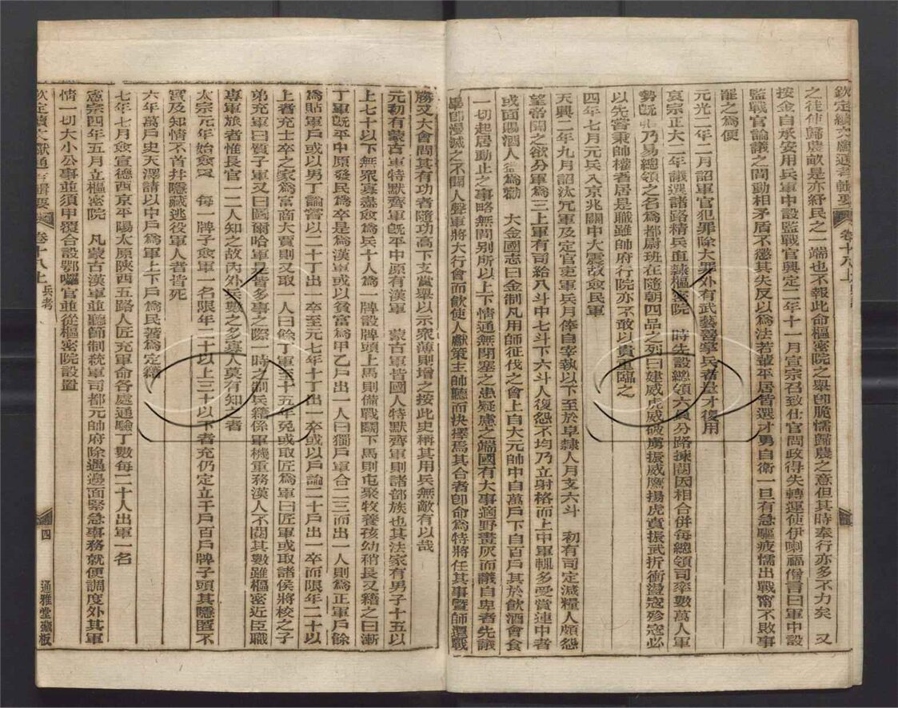 欽定續文獻通考輯要 卷十八上
之徒使歸農畝是亦紓民之一端也不報此命樞密院之舉卽脆懦歸農之意但其時奉行亦多不力矣 又
按金自承安用兵軍中設監戰官興定二年十一月宣宗召致仕官問政得失轉運使伊喇福僧言曰軍中設
監戰官論議之間動相矛盾不懲其失反以為法若輩平居皆選才勇自衛一旦有急驅疲懦出戰甯不敗事
罷之為便
元光二年二月詔軍官犯罪除大罪外有武藝善掌兵者量才復用
哀宗正大二年議選諸路精兵直隸樞密院 時先設總領六員分路揀閱因相合併每總領司率數萬人軍
勢旣張乃易總領之名為都尉班在隨朝四品之列曰建威虎威破虜振威鷹揚虎賁振武折衝盪寇殄寇必
以先嘗秉帥權者居是職雖帥府行院亦不敢以貴重臨之
四年七月元兵入京兆關中大震致愈民軍
天興二年九月詔汰冗軍及定官吏軍兵月俸自宰執以下至於皁隸人月支六斗 初有司定減糧人頗怨
望帝聞之欲分軍為三上軍有司給八斗中七斗下六斗人復怨不均乃立射格而上中軍輒多受賞連中者
或面賜酒人益為勸 大金國志曰金制凡用師征伐之會上自大元帥中自萬戶下自百戶其於飲酒會食
一切起居動止之事略無間別所以上下情通無閉塞之患疑慮之端國有大事適野畫灰而議自卑者先議
畢卽漫滅之不聞人聲軍將大行會而飲使人獻策主帥聽而抉擇焉其合者卽命為特將任其事暨師還戰
勝又大會問其有功者隨功高下支賞舉以示眾薄則增之按此史稱其用兵無敵有以哉
元初有蒙古軍特默齊軍旣平中原有漢軍 蒙古軍皆國人特默齊軍則諸部族也其法家有男子十五以
上七十以下無眾寡盡僉為兵十人為一牌設牌頭上馬則備戰鬬下馬則屯聚牧養孩幼稍長又籍之曰漸
丁軍旣平中原發民為卒是為漢軍或以貧富為甲乙戶出一人曰獨戶軍合二三而出一人則為正軍戶餘
為貼軍戶或以男丁論嘗以二十丁出一卒至元七年十丁出一卒或以戶論二十戶出一卒而限年二十以
上者充士卒之家為富商大賈則又取一人曰餘丁軍至十五年免或取匠為軍曰匠軍或取諸侯將校之子
弟充軍曰質子軍又曰圖爾哈軍是皆多事之際一時之制兵籍係軍機重務漢人不閱其數雖樞密近臣職
專軍旅者惟長官一二人知之故內外兵數之多寡人莫有知之者
太宗元年始僉軍 每一牌子僉軍一名限年二十以上三十以下者充仍定立千戶百戶牌子頭其隱匿不
實及知情不首幷隱藏逃役軍人者皆死
六年萬戶史天澤請以中戶為軍上下戶為民著為定籍
七年七月僉宣德西京平陽太原陝西五路人匠充軍命各處通驗丁數每二十人出軍一名
憲宗四年五月立樞密院 凡蒙古漢軍並聽節制統軍司都元帥府除遇邊面緊急事務就便調度外其軍
情一切大小公事並須申覆合設鄂囉官並從樞密院設置
欽定續文獻通考輯要 卷十八上 兵考 四 通雅堂藏板